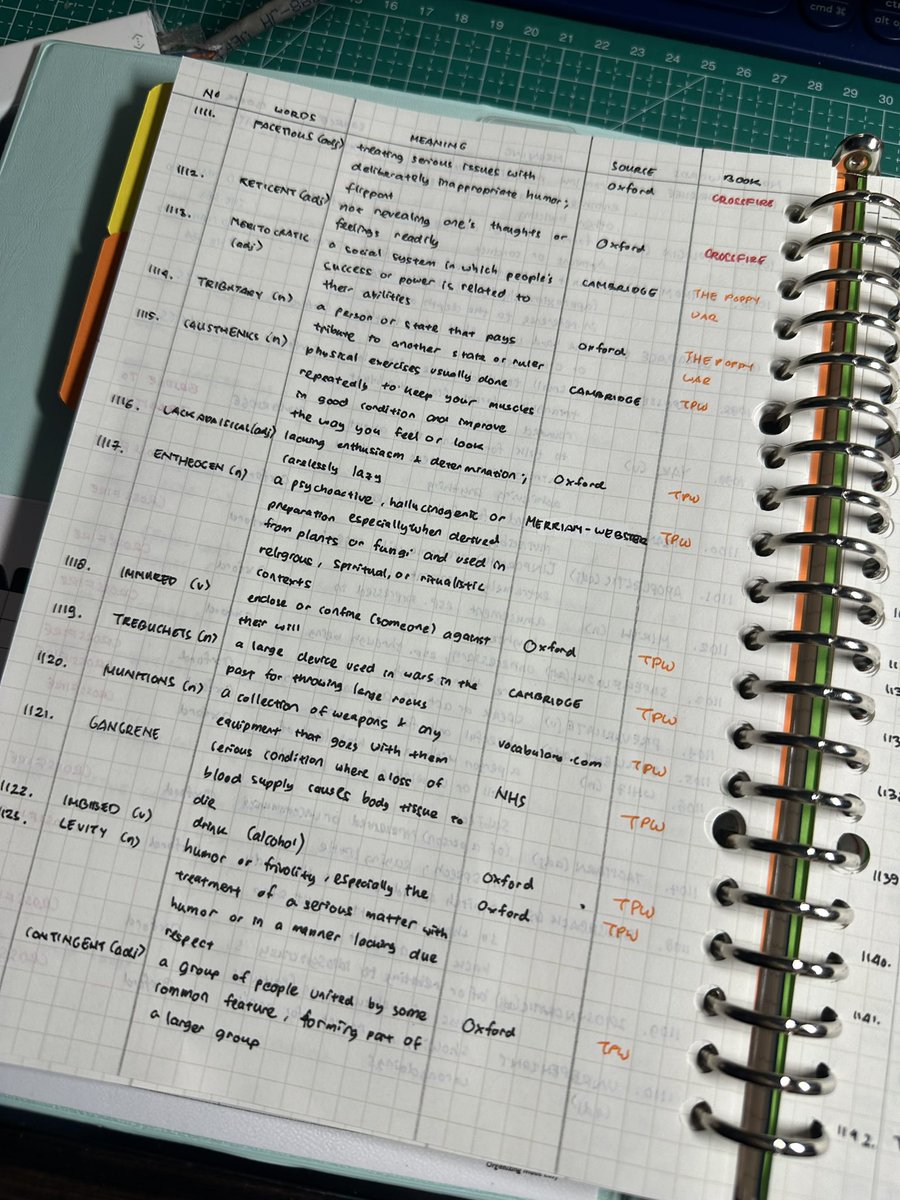 No WORDS MEANING SOURCE BOOK
1111. FACETIOUS (adj) treating serious issues with Oxford CROSSFIRE
deliberately inappropriate humor;
flippant
1112. RETICENT (adj) not revealing one's thoughts or Oxford CROSSFIRE
feelings readily
1113. MERITOCRATIC a social system in which people's CAMBRIDGE THE POPPY
(adj) success or power is related to WAR
their abilities
1114. TRIBUTARY (n) a person or state that pays Oxford THE POPPY
tribute to another state or ruler WAR
1115. CALISTHENICS (n) physical exercises usually done CAMBRIDGE TPW
repeatedly to keep your muscles
in good condition and improve
the way you feel or look
1116. LACKADAISICAL (adj) lacking enthusiasm & determination; Oxford TPW
carelessly lazy
1117. ENTHEOGEN (n) a psychoactive, hallucinogenic or MERRIAM-WEBSTER TPW
preparation especially when derived
from plants or fungi and used in
religious, spiritual, or ritualistic
contexts
1118. IMMURED (v) enclose or confine (someone) against Oxford TPW
their will
1119. TREBUCHETS (n) a large device used in wars in the CAMBRIDGE TPW
past for throwing large rocks
1120. MUNITIONS (n) a collection of weapons & any vocabulary.com TPW
equipment that goes with them
1121. GANGRENE serious condition where a loss of NHS TPW
blood supply causes body tissue to
die
1122. IMBIBED (v) drink (alcohol) Oxford TPW
1123. LEVITY (n) humor or frivolity, especially the Oxford TPW
treatment of a serious matter with
humor or in a manner lacking due
respect
CONTINGENT (adj) a group of people united by some Oxford TPW
common feature, forming part of
a larger group
1139
1140.
1141.
1142.
17 18 19 20 21 22 23 24 25 26 27 28 29 30
cmd ⌘
alt